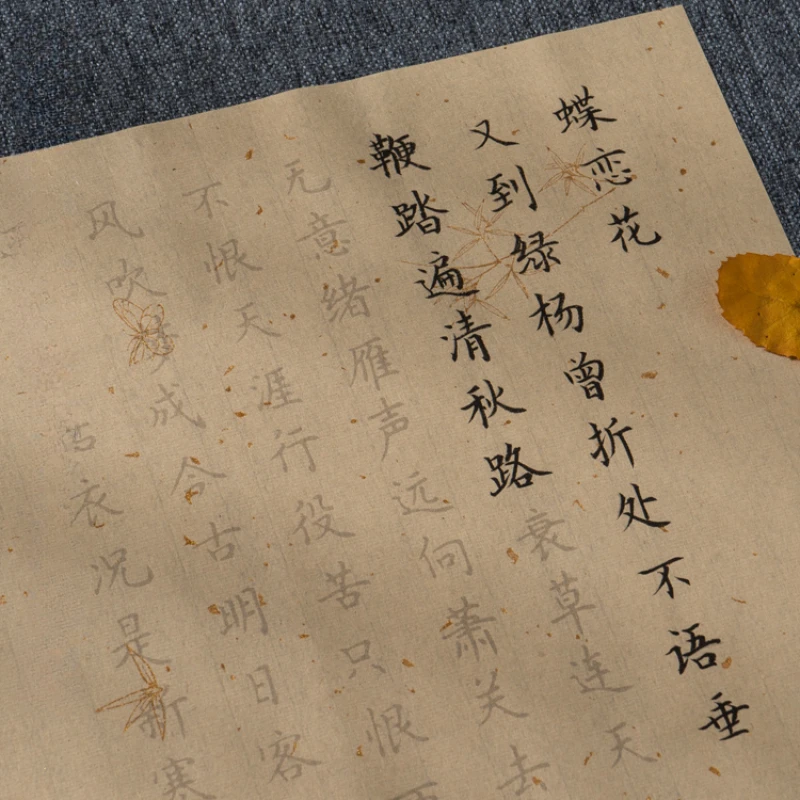 蝶恋花
又到绿杨曾折处不语垂
鞭踏遍清秋路衰草连天
无意绪雁声远向萧关去
不恨天涯行役苦只恨
风吹梦成今古明日客
衣况是新寒